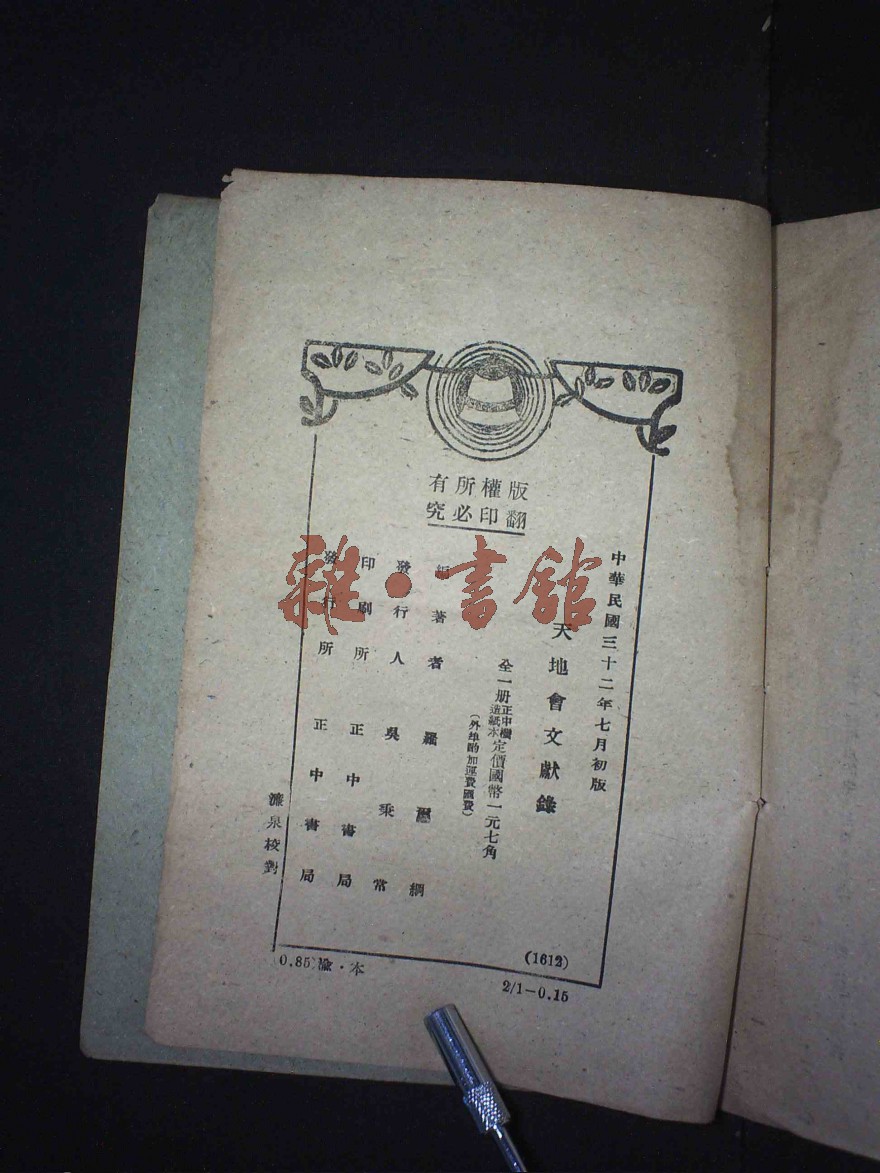 版權所有
翻印必究
中華民國三十二年七月初版
天地會文獻錄
全一册 正中機造紙本 定價國幣一元七角
(外埠酌加運費匯費)
編著者 羅爾綱
發行人 吳秉常
印刷所 正中書局
發行所 正中書局
濂泉校對
(1612)
(0.85)渝·本
2/1-0.15
雜·書館